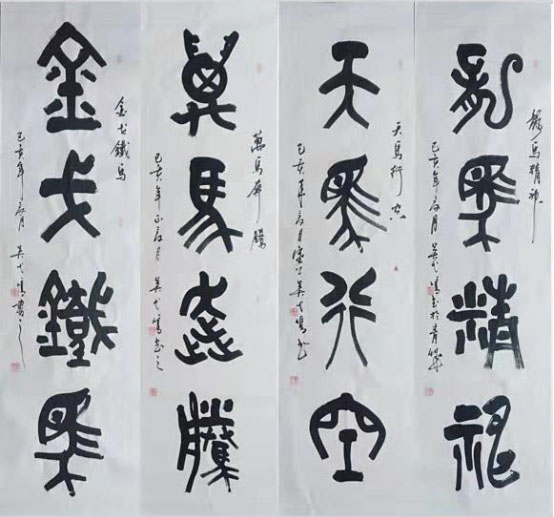 龍馬精神
龍馬精神
己亥年
天馬行空
天馬行空
己亥年
萬馬奔騰
萬馬奔騰
己亥年正月
金戈鐵馬
金戈鐵馬
己亥年